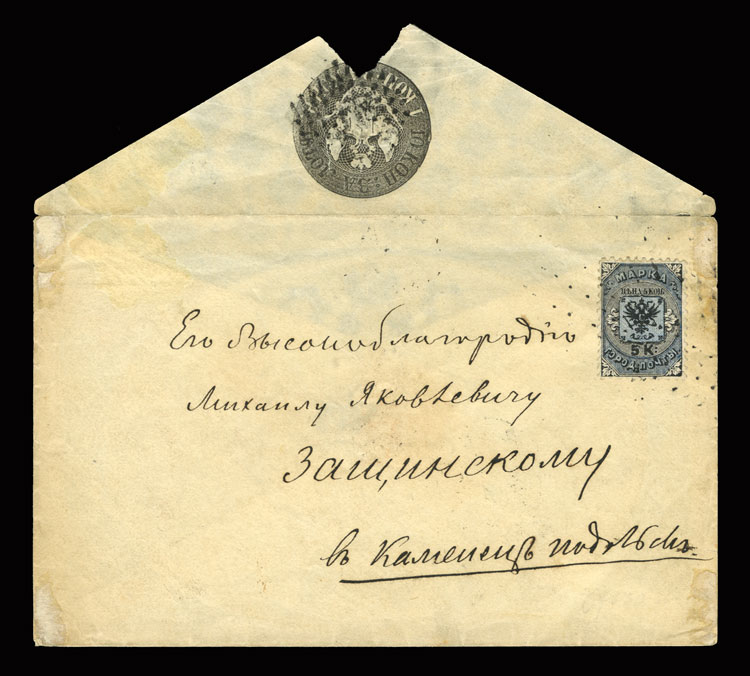 10 КОП.
ЗА
МАРКА
ЦѢНА 5 КОП.
5 К.
ГОРОД. ПОЧТЫ
Его Высокоблагородію
Михаилу Яковлевичу
Защинскому
въ Каменецъ подольск